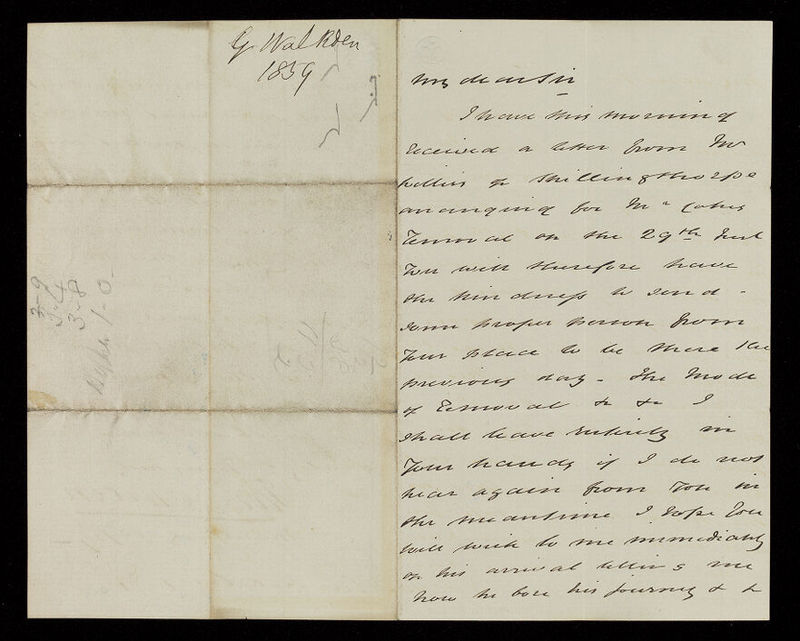 G Walkden
1859
My dear Sir
I have this morning
received a letter from Mr
of Shillingthorpe
arranging for Mr
removal on the 29th Inst
You will therefore have
the kindness to send
some proper person from
Your place to be there the
previous day - The Mode
of Removal &c &c I
shall leave entirely in
Your hands if I do not
hear again from You in
the meantime I hope You
will write to me immediately
on his arrival telling me
how he bore his journey & &
3-9
3-4
3-8
1-0-